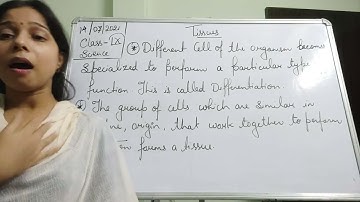 19/08/2021
Class-IX
Science
Tissues
* Different Cell of the organism become
Specialized to perform a particular type
function. This is called Differentiation.
The group of cells which are similar in
origin, that work together to perform
forms a tissue.